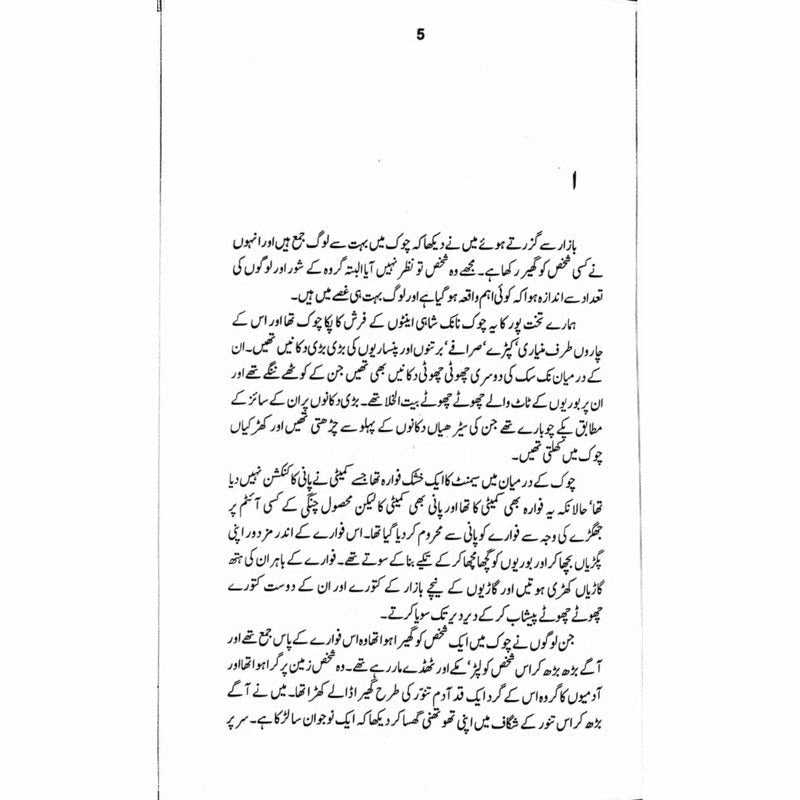 5
ا
بازار سے گزرتے ہوئے میں نے دیکھا کہ چوک میں بہت سے لوگ جمع ہیں اور انہوں
نے کسی شخص کو گھیر رکھا ہے۔ مجھے وہ شخص تو نظر نہیں آیا البتہ گروہ کے شور اور لوگوں کی
تعداد سے اندازہ ہوا کہ کوئی اہم واقعہ ہو گیا ہے اور لوگ بہت ہی غصے میں ہیں۔
ہمارے تخت پور کا یہ چوک نانک شاہی اینٹوں کے فرش کا پکا چوک تھا اور اس کے
چاروں طرف منیاری، کپڑے، صرافے، برتنوں اور پنساریوں کی بڑی بڑی دکانیں تھیں۔ ان
کے درمیان نک سک کی دوسری چھوٹی چھوٹی دکانیں بھی تھیں جن کے کوٹھے ننگے تھے اور
ان پر بوریوں کے ٹاٹ والے چھوٹے چھوٹے بیت الخلا تھے۔ بڑی دکانوں پر ان کے سائز کے
مطابق پکے چوبارے تھے جن کی سیڑھیاں دکانوں کے پہلو سے چڑھتی تھیں اور کھڑکیاں
چوک میں کھلتی تھیں۔
چوک کے درمیان میں سیمنٹ کا ایک خشک فوارہ تھا جسے کمیٹی نے پانی کا کنکشن نہیں دیا
تھا، حالانکہ یہ فوارہ بھی کمیٹی کا تھا اور پانی بھی کمیٹی کا لیکن محصول چنگی کے کسی آئٹم پر
جھگڑے کی وجہ سے فوارے کو پانی سے محروم کر دیا گیا تھا۔ اس فوارے کے اندر مزدور اپنی
پگڑیاں بچھا کر اور بوریوں کو گچھا مچھا کر کے تکیے بنا کے سوتے تھے۔ فوارے کے باہر ان کی ہتھ
گاڑیاں کھڑی ہوتیں اور گاڑیوں کے نیچے بازار کے کتورے اور ان کے دوست کتورے
چھوٹے چھوٹے پیشاب کر کے دیر دیر تک سویا کرتے۔
جن لوگوں نے چوک میں ایک شخص کو گھیرا ہوا تھا وہ اس فوارے کے پاس جمع تھے اور
آگے بڑھ بڑھ کر اس شخص کو لپڑ، مکے اور ٹھڈے مار رہے تھے۔ وہ شخص زمین پر گرا ہوا تھا اور
آدمیوں کا گروہ اس کے گرد ایک قد آدم تنور کی طرح گھیرا ڈالے کھڑا تھا۔ میں نے آگے
بڑھ کر اس تنور کے شگاف میں اپنی تھوتھنی گھسا کر دیکھا کہ ایک نوجوان سا لڑکا ہے۔ سر پر